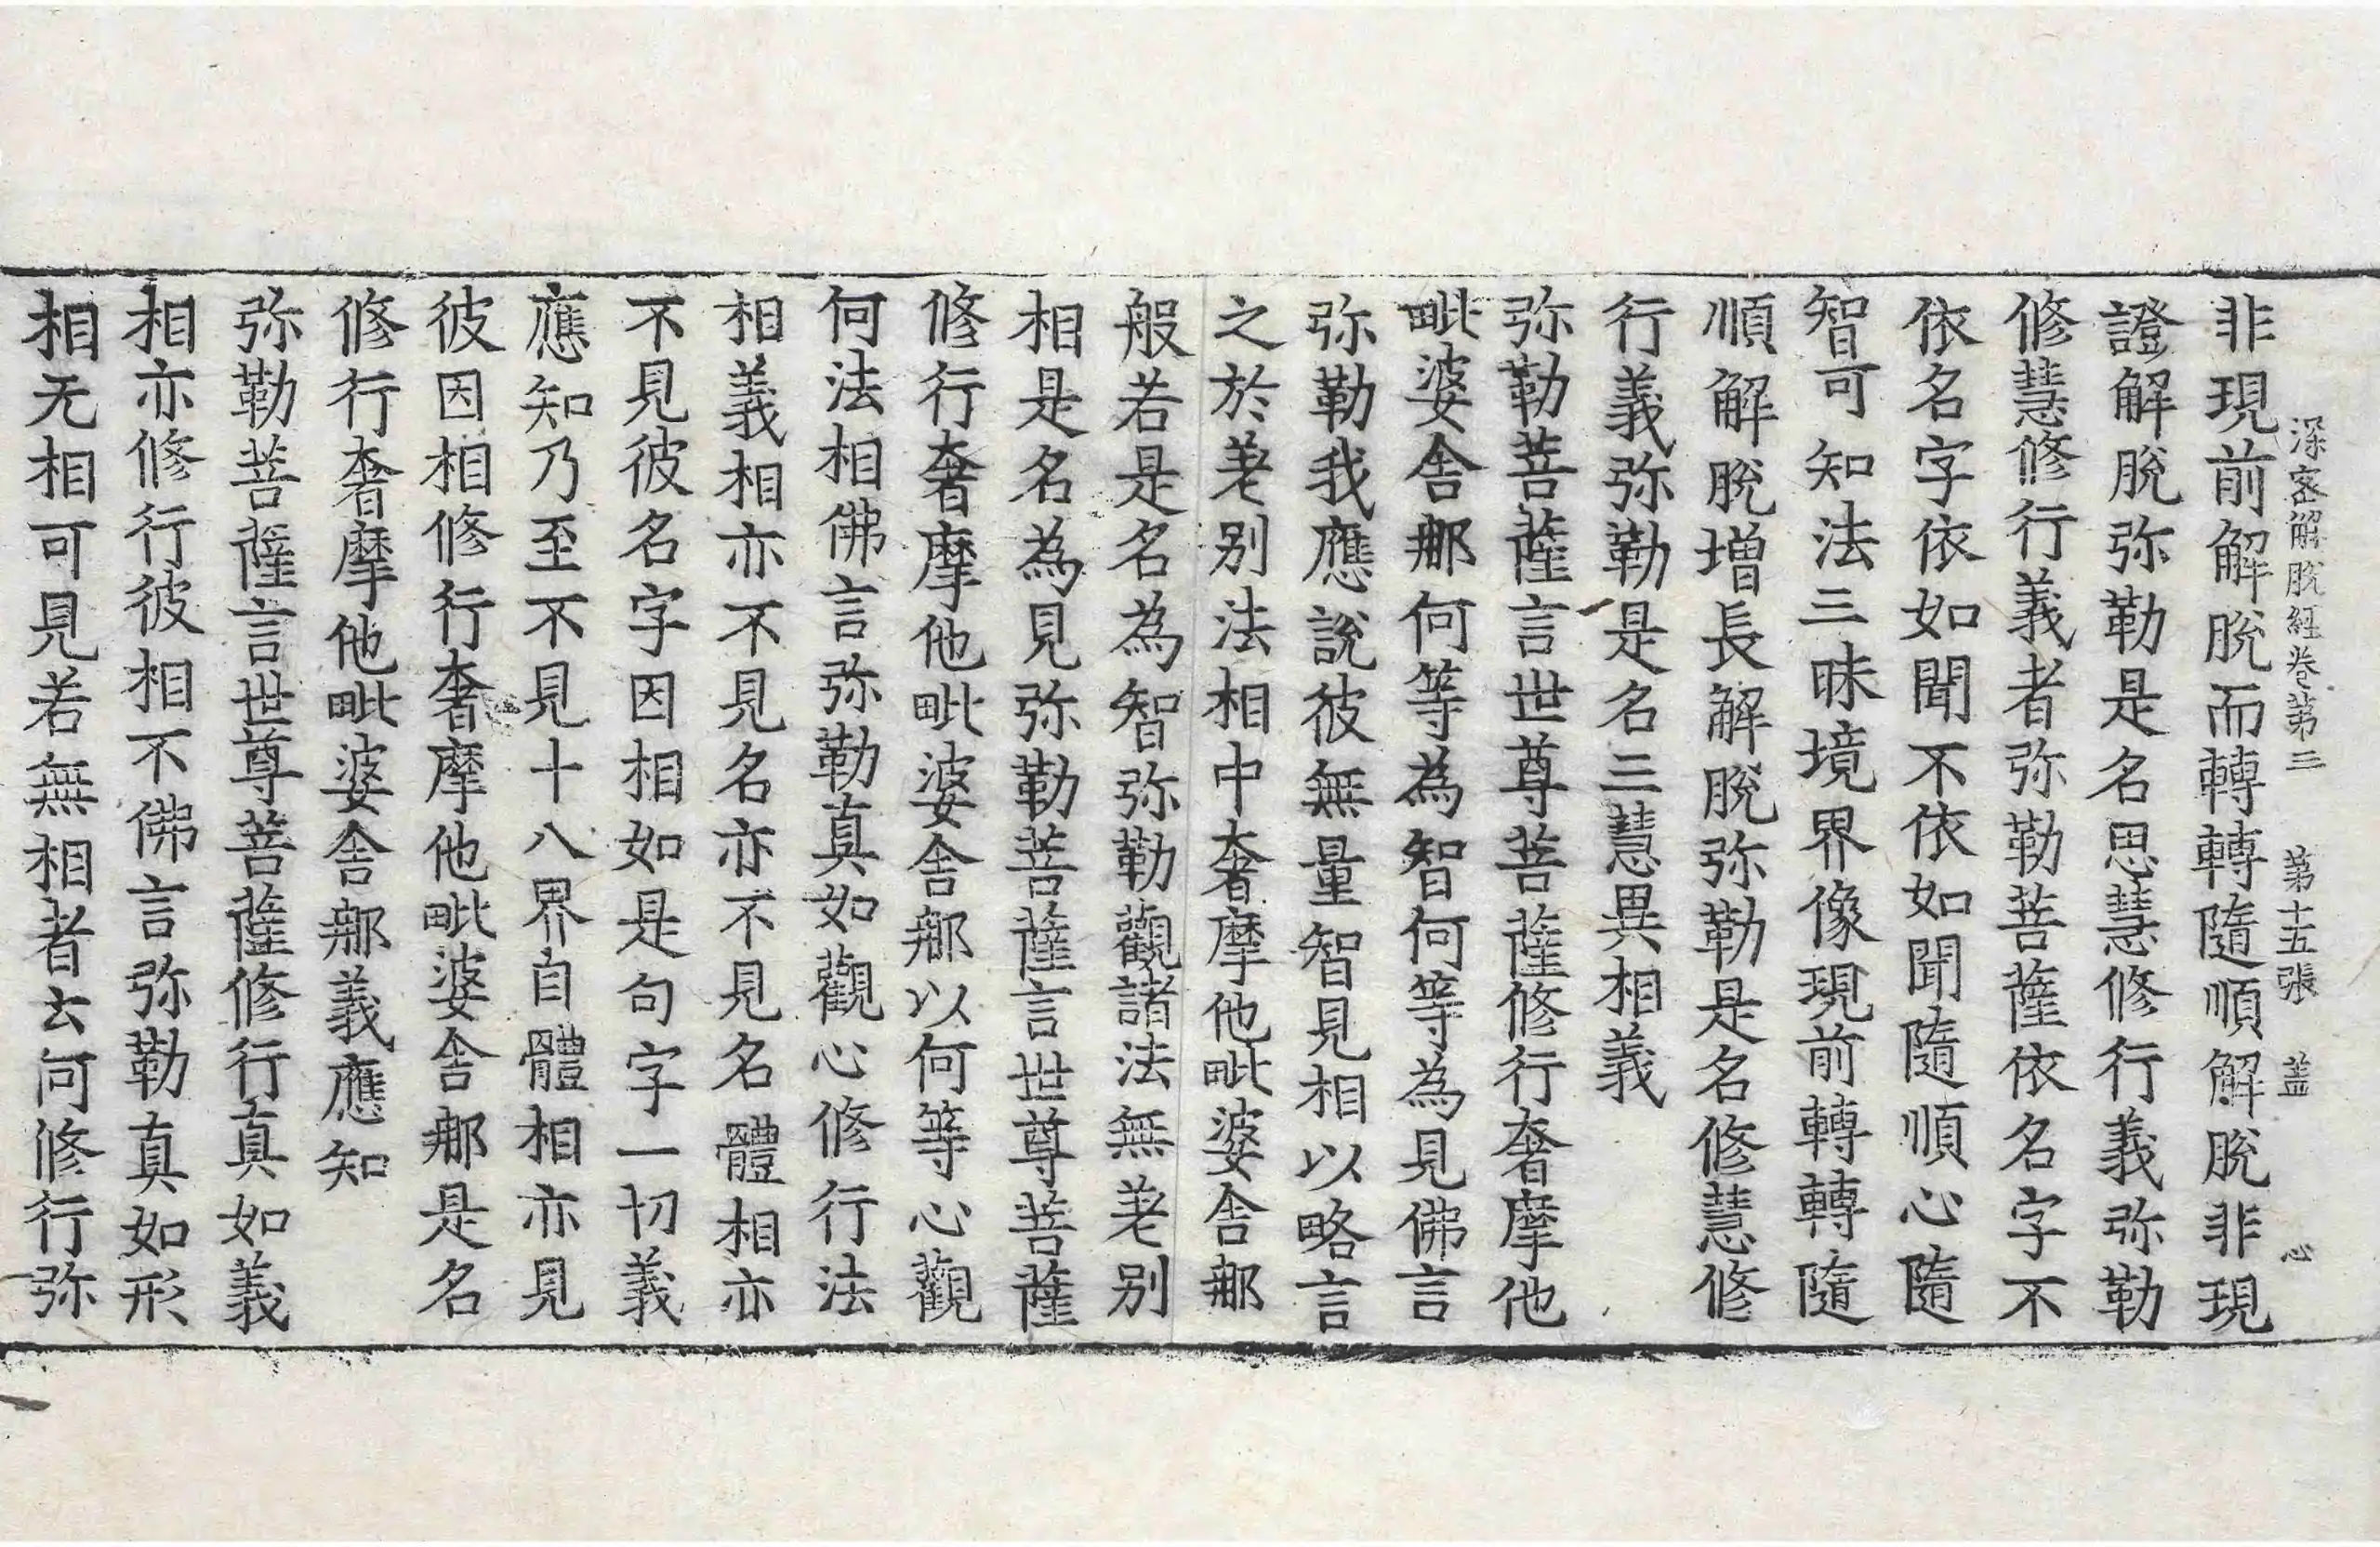 深密解脫經卷第三　第十五張　盖　心
非現前解脫而轉轉隨順解脫非現
證解脫弥勒是名思慧修行義弥勒
修慧修行義者弥勒菩薩依名字不
依名字依如聞不依如聞隨順心隨
智可知法三昧境界像現前轉轉隨
順解脫增長解脫弥勒是名修慧修
行義弥勒是名三慧異相義
弥勒菩薩言世尊菩薩修行奢摩他
毗婆舍那何等為智何等為見佛言
弥勒我應說彼無量智見相以略言
之於差別法相中奢摩他毗婆舍那
般若是名為智弥勒觀諸法無差別
相是名為見弥勒菩薩言世尊菩薩
修行奢摩他毗婆舍那以何等心觀
何法相佛言弥勒真如觀心修行法
相義相亦不見名亦不見名體相亦
不見彼名字因相如是句字一切義
應知乃至不見十八界自體相亦見
彼因相修行奢摩他毗婆舍那是名
修行奢摩他毗婆舍那義應知
弥勒菩薩言世尊菩薩修行真如義
相亦修行彼相不佛言弥勒真如形
相无相可見若無相者云何修行弥